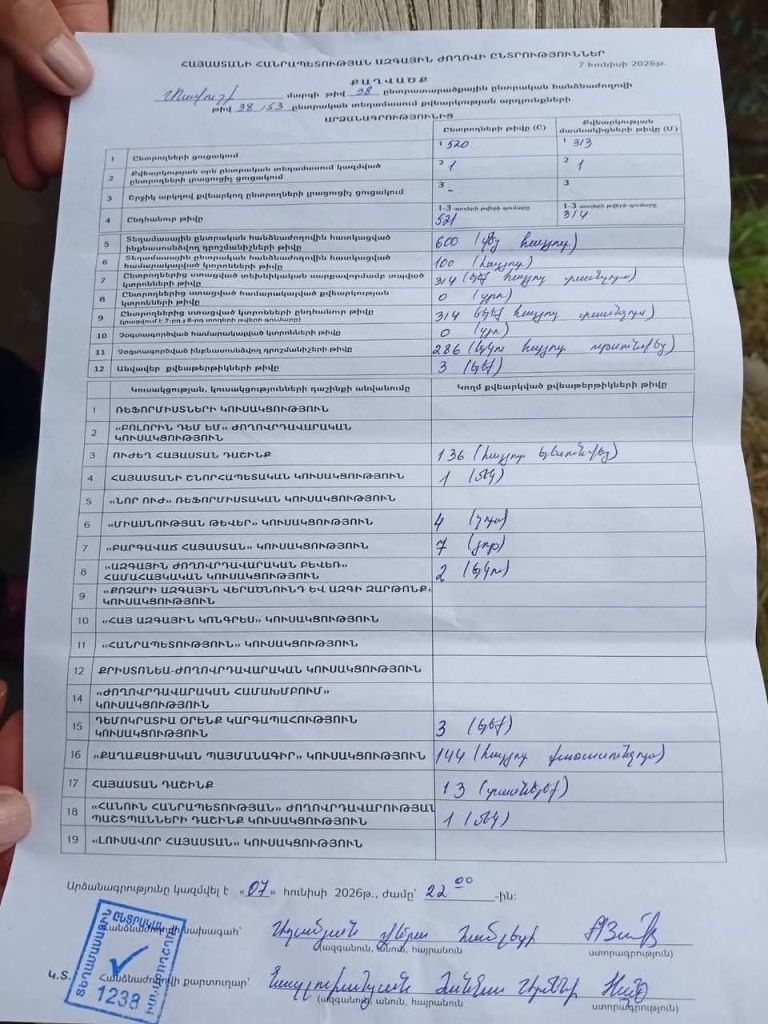 ՀԱՅԱՍՏԱՆԻ ՀԱՆՐԱՊԵՏՈՒԹՅԱՆ ԱԶԳԱՅԻՆ ԺՈՂՈՎԻ ԸՆՏՐՈՒԹՅՈՒՆՆԵՐ
7 հունիսի 2026թ.
ՔԱՂՎԱԾՔ
մարզի թիվ 38 ընտրատարածքային ընտրական հանձնաժողովի
թիվ 38/53 ընտրական տեղամասում քվեարկության արդյունքների
ԱՐՁԱՆԱԳՐՈՒԹՅՈՒՆԻՑ
Ընտրողների թիվը (Ը) Քվեարկության մասնակիցների թիվը (Մ)
1 Ընտրողների ցուցակում 1 520 1 313
2 Քվեարկության օրն ընտրական տեղամասում կազմված ընտրողների լրացուցիչ ցուցակում 2 1 2 1
3 Շրջիկ արկղով քվեարկող ընտրողների լրացուցիչ ցուցակում 3 - 3
4 Ընդհանուր թիվը 1-3 տողերի թվերի գումարը 521 1-3 տողերի թվերի գումարը 314
5 Տեղամասային ընտրական հանձնաժողովին հատկացված ինքնասոսնձվող դրոշմանիշների թիվը 600 (վեց հարյուր)
6 Տեղամասային ընտրական հանձնաժողովին հատկացված համարակալված կտրոնների թիվը 100 (հարյուր)
7 Ընտրողներից ստացված տեխնիկական սարքավորմամբ տպված կտրոնների թիվը 314 (երեք հարյուր տասնչորս)
8 Ընտրողներից ստացված համարակալված քվեարկության կտրոնների թիվը 0 (զրո)
9 Ընտրողներից ստացված կտրոնների ընդհանուր թիվը 314 (երեք հարյուր տասնչորս)
(լրացվում է 7-րդ և 8-րդ տողերի թվերի գումարը)
10 Չօգտագործված համարակալված կտրոնների թիվը 0 (զրո)
11 Չօգտագործված ինքնասոսնձվող դրոշմանիշների թիվը 286 (երկու հարյուր ութսունվեց)
12 Անվավեր քվեաթերթիկների թիվը 3 (երեք)
Կուսակցության, կուսակցությունների դաշինքի անվանումը Կողմ քվեարկված քվեաթերթիկների թիվը
1 ՌԵՖՈՐՄԻՍՏՆԵՐԻ ԿՈՒՍԱԿՑՈՒԹՅՈՒՆ
2 «ԲՈԼՈՐԻՆ ԴԵՄ ԵՄ» ԺՈՂՈՎՐԴԱՎԱՐԱԿԱՆ ԿՈՒՍԱԿՑՈՒԹՅՈՒՆ
3 ՈՒԺԵՂ ՀԱՅԱՍՏԱՆ ԴԱՇԻՆՔ 136 (հարյուր երեսունվեց)
4 ՀԱՅԱՍՏԱՆԻ ՇՆՈՐՀԱՊԵՏԱԿԱՆ ԿՈՒՍԱԿՑՈՒԹՅՈՒՆ 1 (մեկ)
5 «ՆՈՐ ՈՒԺ» ՌԵՖՈՐՄԻՍՏԱԿԱՆ ԿՈՒՍԱԿՑՈՒԹՅՈՒՆ
6 «ՄԻԱՍՆՈՒԹՅԱՆ ԹԵՎԵՐ» ԿՈՒՍԱԿՑՈՒԹՅՈՒՆ 4 (չորս)
7 «ԲԱՐԳԱՎԱՃ ՀԱՅԱՍՏԱՆ» ԿՈՒՍԱԿՑՈՒԹՅՈՒՆ 7 (յոթ)
8 «ԱԶԳԱՅԻՆ ԺՈՂՈՎՐԴԱՎԱՐԱԿԱՆ ԲԵՎԵՌ» ՀԱՄԱՀԱՅԿԱԿԱՆ ԿՈՒՍԱԿՑՈՒԹՅՈՒՆ 2 (երկու)
9 «ՔՈՉԱՐԻ ԱԶԳԱՅԻՆ ՎԵՐԱԾՆՈՒՆԴ ԵՎ ԱԶԳԻ ԶԱՐԹՈՆՔ» ԿՈՒՍԱԿՑՈՒԹՅՈՒՆ
10 «ՀԱՅ ԱԶԳԱՅԻՆ ԿՈՆԳՐԵՍ» ԿՈՒՍԱԿՑՈՒԹՅՈՒՆ
11 «ՀԱՆՐԱՊԵՏՈՒԹՅՈՒՆ» ԿՈՒՍԱԿՑՈՒԹՅՈՒՆ
12 ՔՐԻՍՏՈՆԵԱ-ԺՈՂՈՎՐԴԱՎԱՐԱԿԱՆ ԿՈՒՍԱԿՑՈՒԹՅՈՒՆ
14 «ԺՈՂՈՎՐԴԱՎԱՐԱԿԱՆ ՀԱՄԱԽՄԲՈՒՄ» ԿՈՒՍԱԿՑՈՒԹՅՈՒՆ
15 ԴԵՄՈԿՐԱՏԻԱ ՕՐԵՆՔ ԿԱՐԳԱՊԱՀՈՒԹՅՈՒՆ ԿՈՒՍԱԿՑՈՒԹՅՈՒՆ 3 (երեք)
16 «ՔԱՂԱՔԱՑԻԱԿԱՆ ՊԱՅՄԱՆԱԳԻՐ» ԿՈՒՍԱԿՑՈՒԹՅՈՒՆ 144 (հարյուր քառասունչորս)
17 ՀԱՅԱՍՏԱՆ ԴԱՇԻՆՔ 13 (տասներեք)
18 «ՀԱՆՈՒՆ ՀԱՆՐԱՊԵՏՈՒԹՅԱՆ» ԺՈՂՈՎՐԴԱՎԱՐՈՒԹՅԱՆ ՊԱՇՏՊԱՆՆԵՐԻ ԴԱՇԻՆՔ ԿՈՒՍԱԿՑՈՒԹՅՈՒՆ 1 (մեկ)
19 «ԼՈՒՍԱՎՈՐ ՀԱՅԱՍՏԱՆ» ԿՈՒՍԱԿՑՈՒԹՅՈՒՆ
Արձանագրությունը կազմվել է «07» հունիսի 2026թ., ժամը՝ 22 00 -ին:
Հանձնաժողովի նախագահ՝
(ազգանուն, անուն, հայրանուն) ստորագրություն)
Կ.Տ. Հանձնաժողովի քարտուղար՝
(ազգանուն, անուն, հայրանուն) ստորագրություն)
1238